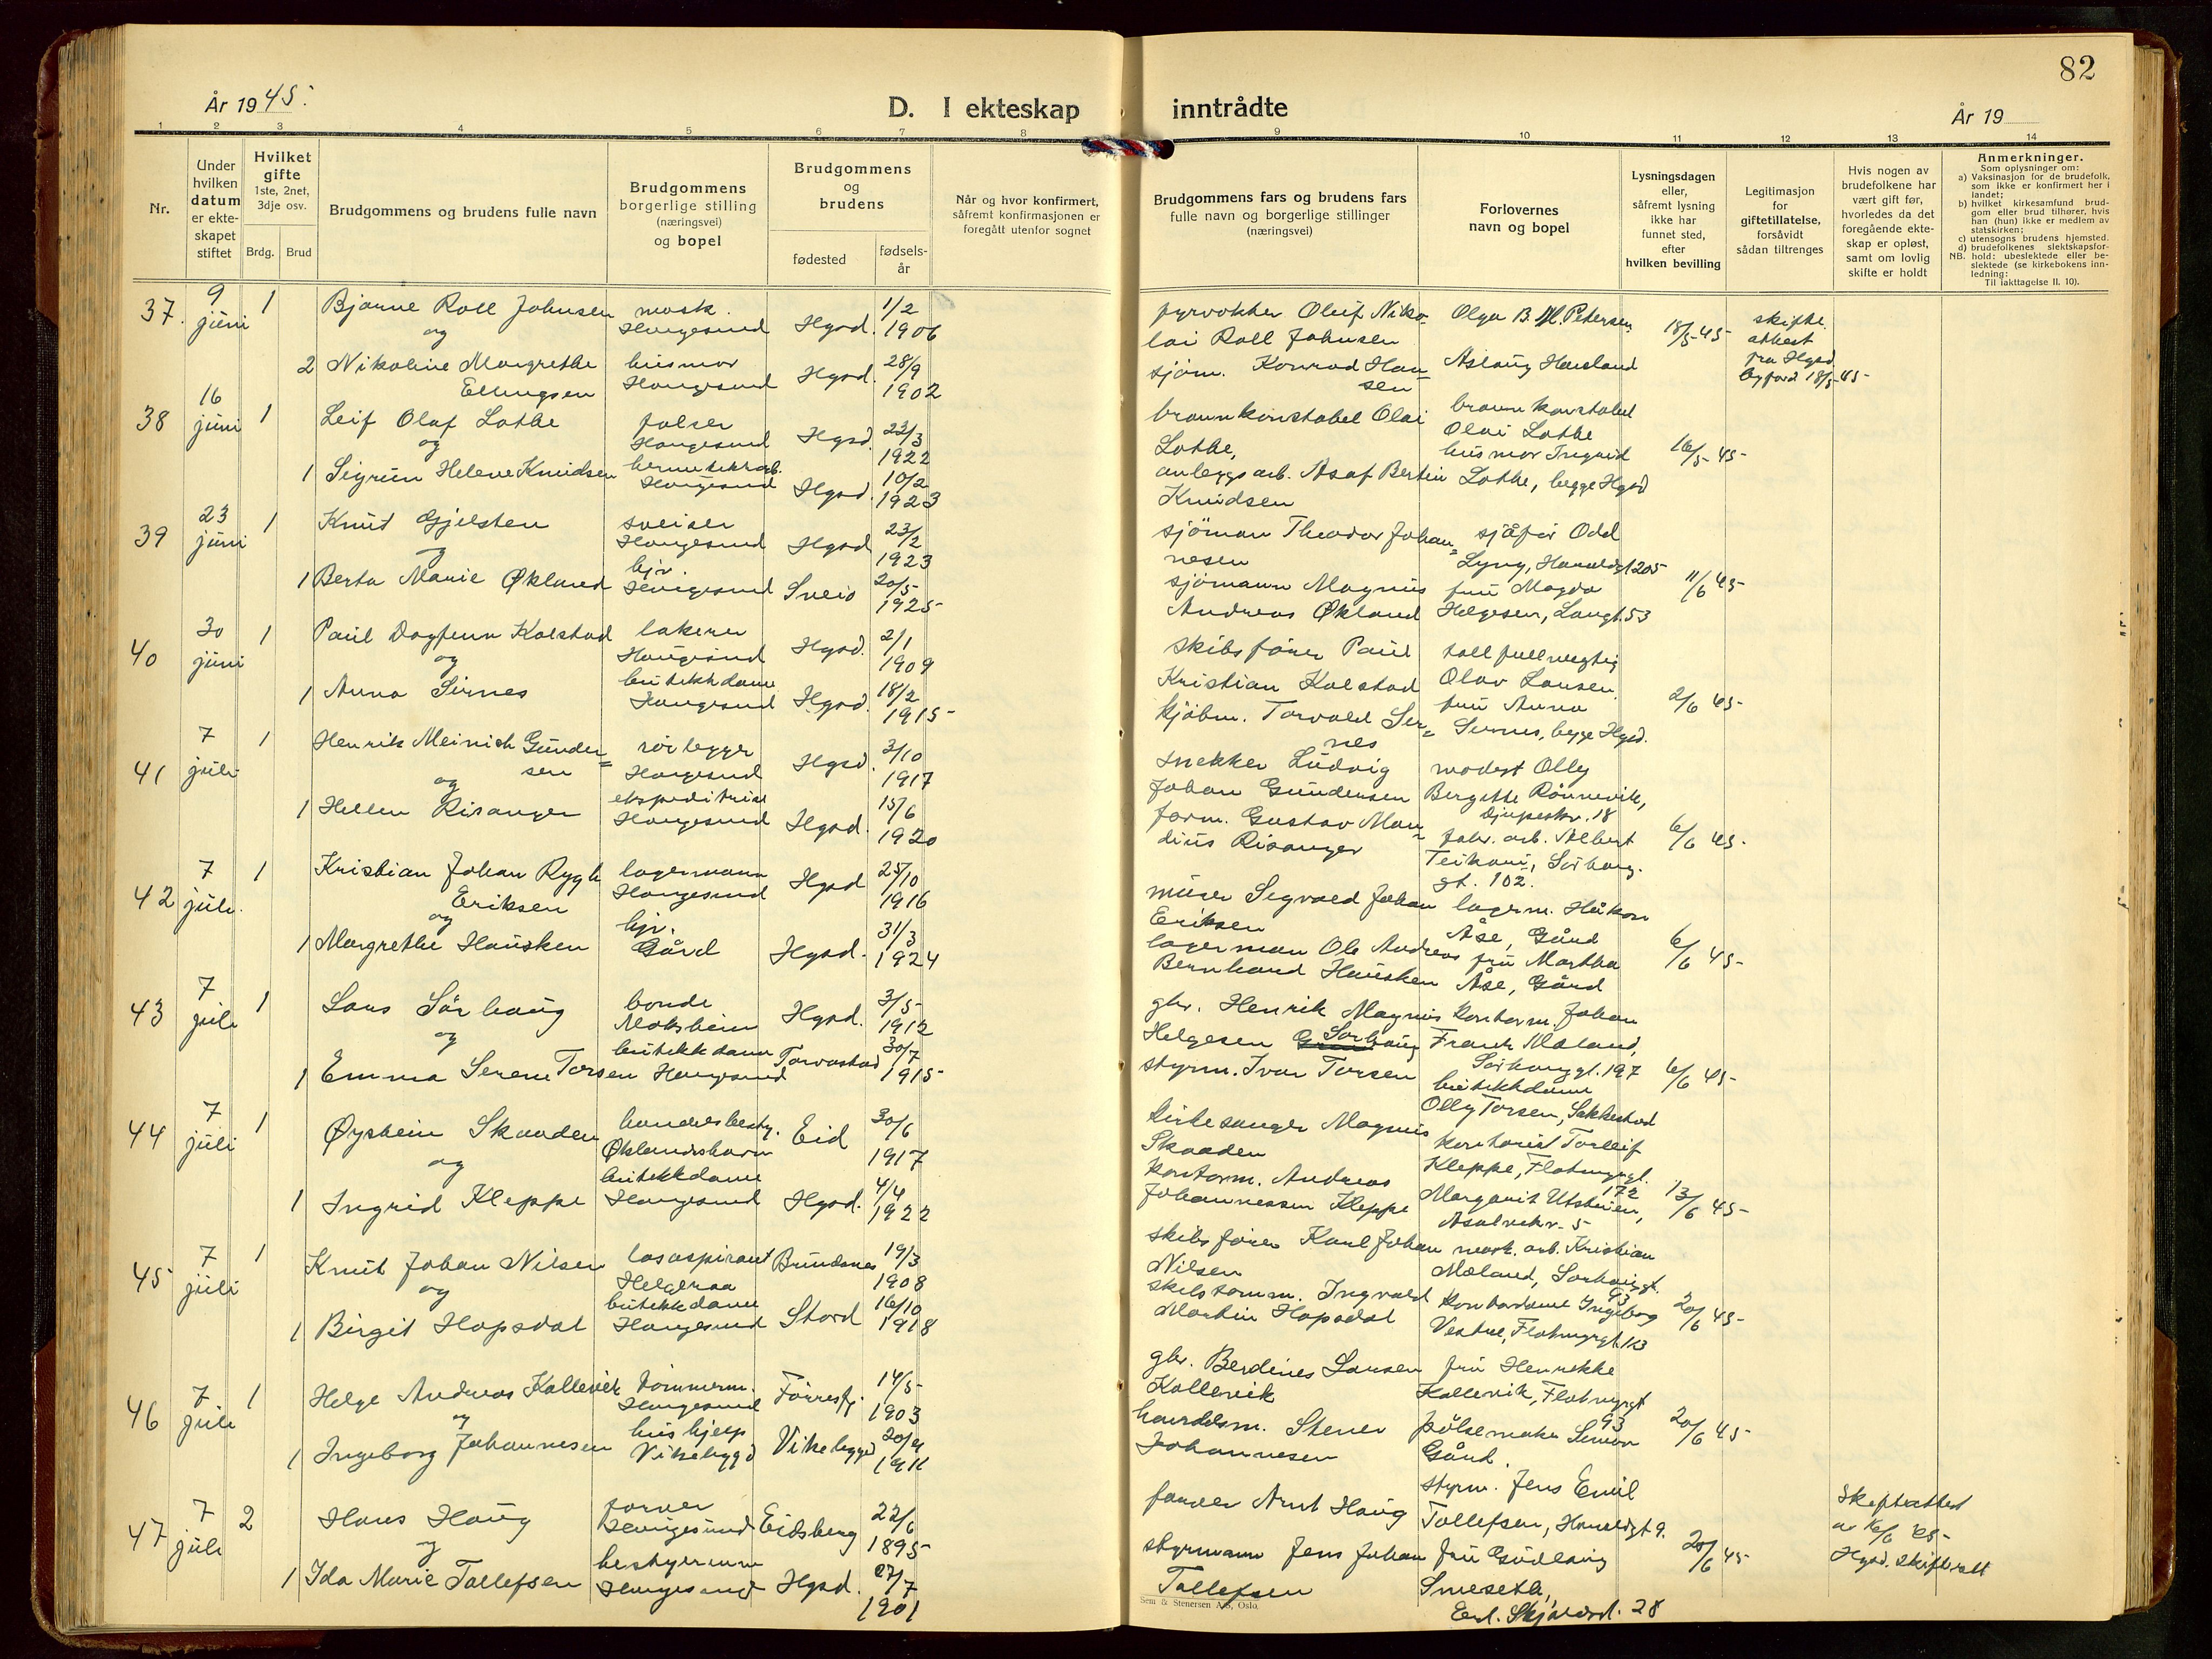 82
År 1945.
D. I ekteskap
inntrådte
År 19
1 2 3 4 5 6 7 8 9 10 11 12 13 14
Nr.
Under hvilken datum er ekte-skapet stiftet
Hvilket gifte
1ste, 2net, 3dje osv.
Brdg. Brud
Brudgommens og brudens fulle navn
Brudgommens borgerlige stilling (næringsvei) og bopel
Brudgommens og brudens
fødested
fødsels-år
Når og hvor konfirmert, såfremt konfirmasjonen er foregått utenfor sognet
Brudgommens fars og brudens fars fulle navn og borgerlige stillinger (næringsvei)
Forlovernes navn og bopel
Lysningsdagen eller, såfremt lysning ikke har funnet sted, efter hvilken bevilling
Legitimasjon for giftetillatelse, forsåvidt sådan tiltrenges
Hvis nogen av brudefolkene har vært gift før, hvorledes da det foregående ekte-skap er opløst, samt om lovlig skifte er holdt
Anmerkninger.
Som oplysninger om:
a) Vaksinasjon for de brudefolk, som ikke er konfirmert her i landet;
b) hvilket kirkesamfund brud-gom eller brud tilhører, hvis han (hun) ikke er medlem av statskirken;
c) utensogns brudens hjemsted.
d) brudefolkenes slektskapsfor-hold: ubeslektede eller be-slektede (se kirkebokens inn-ledning:
NB.
Til iakttagelse II. 10).
37. 9 juni 1 Bjarne Roll Johnsen mask. Haugesund Hgsd. 1/2 1906
og
2 Nikoline Margrethe Ellingsen husmor Haugesund Hgsd. 28/9 1902
fyrvokter Oluf Nikolai Roll Johnsen
sjøm. Konrad Hansen
Olga B. M. Petersen
Aslaug Hausland
18/5-45
skifteattest fra Hgsd byford 18/5-45-
38 16 juni 1 Leif Olaf Lothe falser Haugesund Hgsd. 23/3 1922
og
1 Sigrun Helene Knudsen hermetikkarb. Haugesund Hgsd. 10/2 1923
brannkonstabel Olai Lothe,
anleggsarb. Asaf Bertin Knudsen
brannkonstabel Olai Lothe
husmor Ingrid Lothe, begge Hgsd
16/5-45-
39 23 juni 1 Knut Gjelsten sveiser Haugesund Hgsd 23/2 1923
og
1 Berta Marie Økland hjv. Haugesund Sveio 20/5 1925-
sjöman Theodor Johannesen
sjömann Magnus Andreas Økland
sjåfør Odd Lyng, Haraldsgt 205
fru Magda Helgesen, Langt. 53
11/6 45-
40 30 juni 1 Paul Dagfinn Kolstad lakerer Haugesund Hgsd. 2/1 1909
og
1 Anna Sirnes butikkdame Haugesund Hgsd. 18/2 1915-
skibsfører Paul Kristian Kolstad
kjøbm. Torvald Sernes
tollfullmegtig Olav Lausen.
fru Anna Sernes, begge Hgsd.
2/6 45-
41 7 juli 1 Henrik Meinich Gundersen rørlegger Haugesund Hgsd. 3/10 1917
og
1 Hellen Risanger ekspeditrise Haugesund Hgsd. 15/6 1920
snekker Ludvig Johan Gundersen
form. Gustav Mandius Risanger
modist Olly Bergitte Rønnevik, Djupaskv. 18
fabr. arb. Albert Teikari, Sørhaug-gt. 102.
6/6 45-
42 7 juli. 1 Kristian Johan Rygh Eriksen lagermann Haugesund Hgsd 25/10 1916
og
1 Margrethe Hausken hjv. Gård Hgsd. 31/3 1924
murer Sigvald Johan Eriksen
lagerman Ole Andreas Bernhard Hausken
lagerm. Håkon Åse, Gård
fru Martha Åse, Gård
6/6 45-
43 7 juli 1 Lars Sørhaug bonde Moksheim Hgsd. 3/5- 1912
og
1 Emma Serene Torsen butikkdame Haugesund Torvastad 30/7 1915-
gbr. Henrik Magnus Helgesen Sørhaug
styrm. Ivar Torsen
kontorm. Johan Frank Mæland, Sørhauggt. 197
butikkdame Olly Torsen, Sakkestad
6/6 45-
44 7 juli 1 Øystein Skaaden handelsbesty. Ølslandshavn Eid 30/6 1917
og
1 Ingrid Kleppe butikkdame Haugesund Hgsd. 4/4 1922
kirkesanger Magnus Skaaden
kontorm. Andreas Johannessen Kleppe
kontorist Torleif Kleppe, Flotmyrgt. 172
Margarit Utstein, Asalvikv. 5
13/6 45-
45 7 juli 1 Knut Johan Nilsen losaspirant Helgeraa Brundanes 19/3 1908
og
1 Birgit Hopsdal butikkdame Haugesund Stord 16/10 1918
skibsfører Karl Johan Nilsen
skibstømm. Ingvald Martin Hopsdal
mask. arb. Kristian Mæland, Sørhauggt. 93
kontordame Ingeborg Vestre, Flotmyrgt. 113
20/6 45-
46 7 juli 1 Helge Andreas Kallevik tømmerm. Haugesund Førresfj. 14/5- 1903
og
1 Ingeborg Johannesen hushjelp Vikebygd Vikebygd 20/9 1911
gbr. Berdines Larsen Kallevik
handelsm. Stener Johannesen
fru Henrikke Kallevik, Flotmyrgt 93
pølsemaker Simon Gård.
20/6 45-
47 7 juli 2 Hans Haug farver Haugesund Eidsberg 22/6 1895-
og
1 Ida Marie Tollefsen bestyrerinne Haugesund Hgsd. 27/7 1901
farver Arnt Haug
styrmann Jens Johan Tollefsen
styrm. Jens Emil Tollefsen, Haraldsgt 9.
fru Gudlaug Smeseth, Erl. Skjalvsd. 28
20/6 45-
Skifteattest av 16/6 45- Hgsd. skifterett
Sem & Stenersen A/S, Oslo.